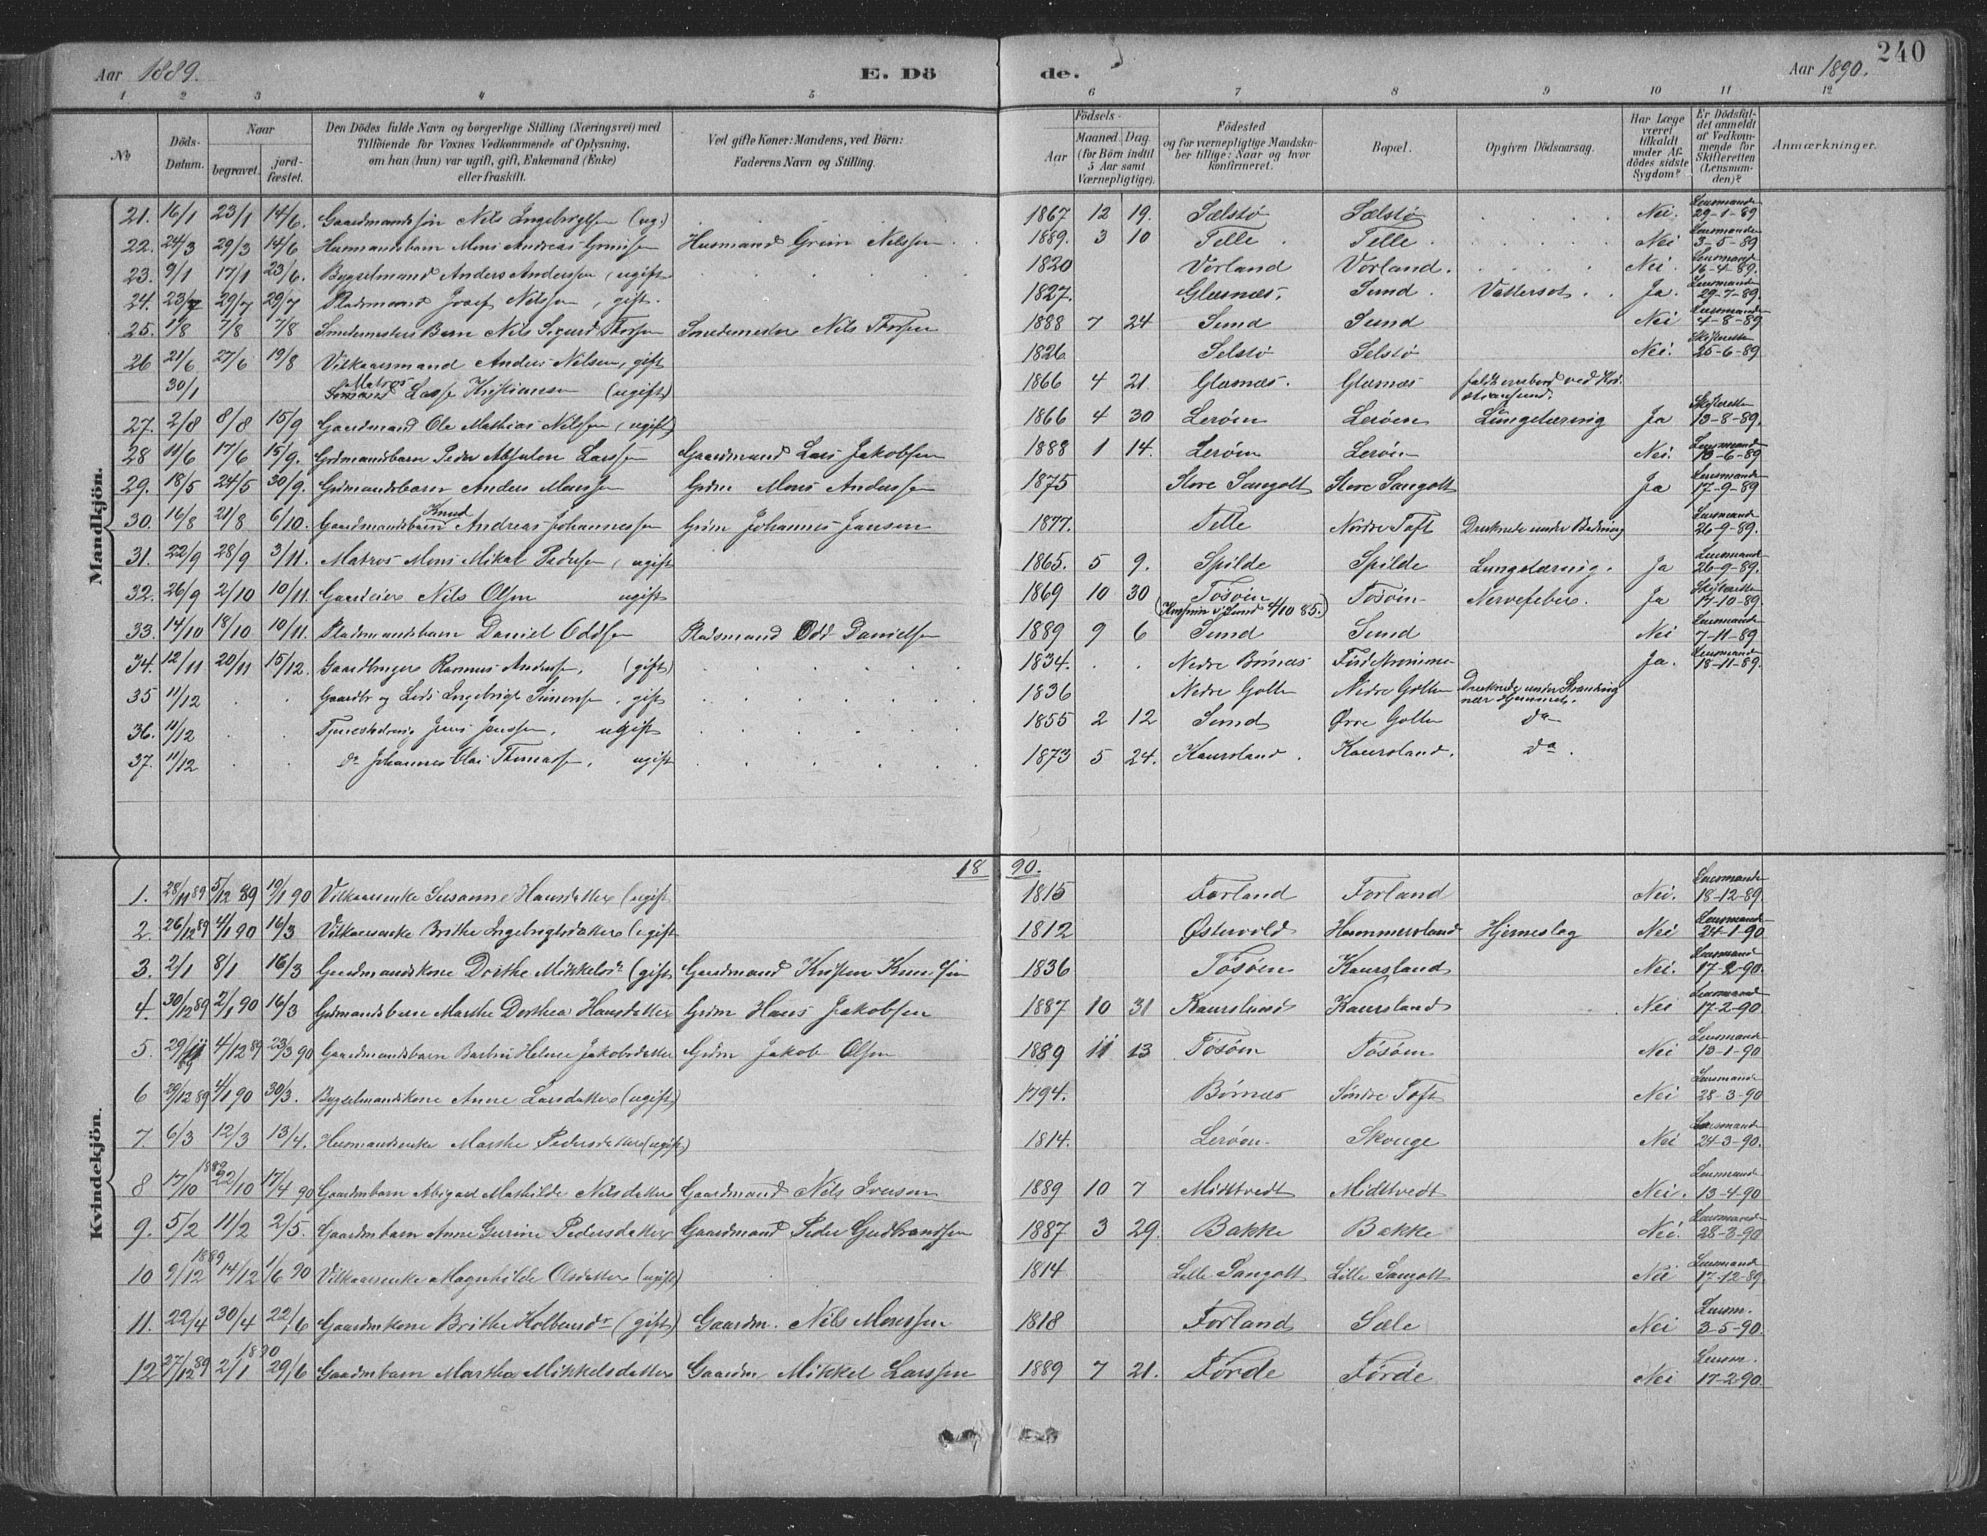 Aar 1889.
E. Dö
de.
Aar 1890.
240
1 2 3 4 5 6 7 8 9 10 11 12
No
Döds-Datum.
Naar
begravet.
jord-fæstet.
Den Dödes fulde Navn og borgerlige Stilling (Næringsvei) med
Tilföiende for Voxnes Vedkommende af Oplysning,
om han (hun) var ugift, gift, Enkemand (Enke)
eller fraskilt.
Ved gifte Koner: Mandens, ved Börn:
Faderens Navn og Stilling.
Födsels-
Aar
Maaned. Dag.
(for Börn indtil
5 Aar samt
Værnepligtige).
Födested
og for værnepligtige Mandskaber tillige: Naar og hvor
konfirmeret.
Bopæl.
Opgiven Dödsaarsag.
Har Læge
været
tilkaldt
under Afdödes sidste
Sygdom?
Er Dödsfaldet anmeldt
af Vedkommende for
Skifteretten
(Lensmanden)?
Anmærkninger.
Mandkjön.
21. 16/1 23/1 14/6. Gaardmandssøn Nils Ingebrigtsen (ug.) 1867 12 19. Sælstø Sælstø Nei. Lensmanden 29-1-89
22. 24/3 29/3 14/6 Husmandsbarn Mons Andreas Grimsen Husmand Grim Nilssen 1889. 3 10 Telle Telle Nei Lensmanden 3-5-89
23. 9/1 17/1 23/6. Bygselmand Anders Anderssen, ugift 1820 Vorland Vorland. Nei. Lensmand 16-4-89.
24. 23/7 29/7 29/7 Pladsmand Josef Nilssen, gift. 1827. Glæsnæs. Sund. Vattersot. Ja. Lensmanden 29-7-89.
25. 1/8 7/8 7/8 Smedemesters Barn Nils Sigurd Thorsen Smedemester Nils Thorsen 1888 7 24 Sund Sund Nei Lensmand 4-8-89
26 21/6 27/6 19/8 Vilkaarsmand Anders Nilsen, gift 1826 Selstø Selstø Nei. Skifteretten 25-6-89
30/1 Matros Lasse Kristiansen (ugift) 1866 4 21. Glæsnæs. Glæsnæs faldt overbord ved Kristiansund.
27. 2/8 8/8 15/9 Gaardmand Ole Mathias Nilssen, (ugift) 1866 4 30 Lerøen Lerøen Lungetæring Ja Skifteretten 13-8-89.
28 11/6 17/6 15/9. Grdmandsbarn Peder Absalon Larssen Gaardmand Lars Jakobsen 1888 1 14. Lerøen Lerøen Nei. Lensmand 13-6-89
29. 18/5 24/5 30/9. Grdmandsbarn Anders Monssen Grdm Mons Anderssen 1875 Store Sangolt Store Sangolt Ja Lensmand 17-9-89
30. 16/8 21/8 6/10. Gaardmandsbarn Knud Andreas Johannessen Grdm Johannes Jansen 1877. Telle Nordre Toft Druknede under Badning Lensmand 26-9-89.
31. 22/9 28/9 3/11. Matros Mons Mikal Pedersen, ugift 1865. 5 9. Spilde Spilde Lungetæring. Ja Lensmand 26-9-89.
32. 26/9 2/10 10/11. Gaardeier Nils Olsen ugift 1869 10 30 Tøsøen (Konfirm. i Sund 4/10 85.) Tøsøen Nervefeber. Ja Skifteretten 17-10-89.
33. 14/10 18/10 10/11. Pladsmandsbarn Daniel Oddsen Pladsmand Odd Danielsen 1889 9 6 Sund Sund Nei Lensmand 7-11-89
34. 12/11 20/11 15/12. Gaardbruger Rasmus Andersen, (gift) 1834. Nedre Børnæs Ja. Lensmand 18-11-89.
35 11/12 Gaardbr og Lods Ingebrigt Simonsen, gift 1836 Nedre Golten Nedre Golten Druknede under Stranding nær Hjemmet.
36. 11/12 Tjenestedreng Jens Janssen, ugift 1855 2 12 Sund Øvre Golten do
37. 11/12 do Johannes Olai Thomassen, ugift 1873 5 24. Kaursland. Kaursland. do.
1890.
Kvindekjön.
1. 28/11 89 5/12 89 19/1 90 Vilkaarsenke Susanne Hansdatter (ugift 1815 Forland Forland Nei. Lensmand 18-12-89.
2. 26/12 89 4/1 90 16/3 Vilkaarsenke Brithe Ingebrigtsdatter (ugift 1812 Østervold Hammersland Hjerneslag Nei Lensmand 24-1-90
3. 2/1 8/1 16/3 Gaardmandskone Dorthe Mikkelsdr (gift Gaardmand Kristen 1836 Tøsøen Kaursland Nei. Lensmand 17-2-90.
4. 30/12 89 2/1 90 16/3 Grdmandsbarn Marthe Dorthea Hansdatter Grdm Hans Jakobsen 1887 10 31 Kaursland Kaursland Nei Lensmand 17-2-90.
5. 29/11 89 4/12 89 23/3 90 Gaardmandsbarn Barbru Helene Jakobsdatter Grdm Jakob Olsen 1889 11 13 Tøsøen Tøsøen Nei Lensmand 13-1-90
6 29/12 89 4/1 90 30/3. Bygselmandskone Anne Larsdatter (ugift) 1794. Børnæs Søndre Toft Nei Lensmand 28-3-90
7. 6/3 12/3 13/4. Husmandsenke Marthe Pedersdatter (ugift) 1814. Lerøen. Skouge Nei Lensmand 24-3-90.
8 17/10 1889 22/10 17/4 90 Gaardmbarn Abigael Mathilde Nilsdatter Gaardmand Nils Iversen 1889 10 7 Midttvedt Midttvedt Nei. Lensmand 13-4-90
9. 5/2 11/2 2/5. Gaardmbarn Anne Gurine Pedersdatter Gaardmand Peder Gudbrandsen 1887 3 29. Bakke Bakke Nei. Lensmand 28-3-90
10 9/12 1889 14/12 1/6 90 Vilkaarsenke Magnhilde Olsdatter (ugift) 1814 Lille Sangolt Lille Sangolt Nei Lensmand 17-12-89.
11. 22/4 30/4 22/6 Gaardmkone Brithe Kolbensdr (gift) Gaardm. Nils Monssen 1818 Forland Sæle Nei Lensm. 3-5-90.
12 27/12 89 2/1 1890 29/6 Gaardmbarn Martha Mikkelsdatter Gaardm Mikkel Larssen 1889 7 21. Førde Førde Nei Lensm. 17-2-90.